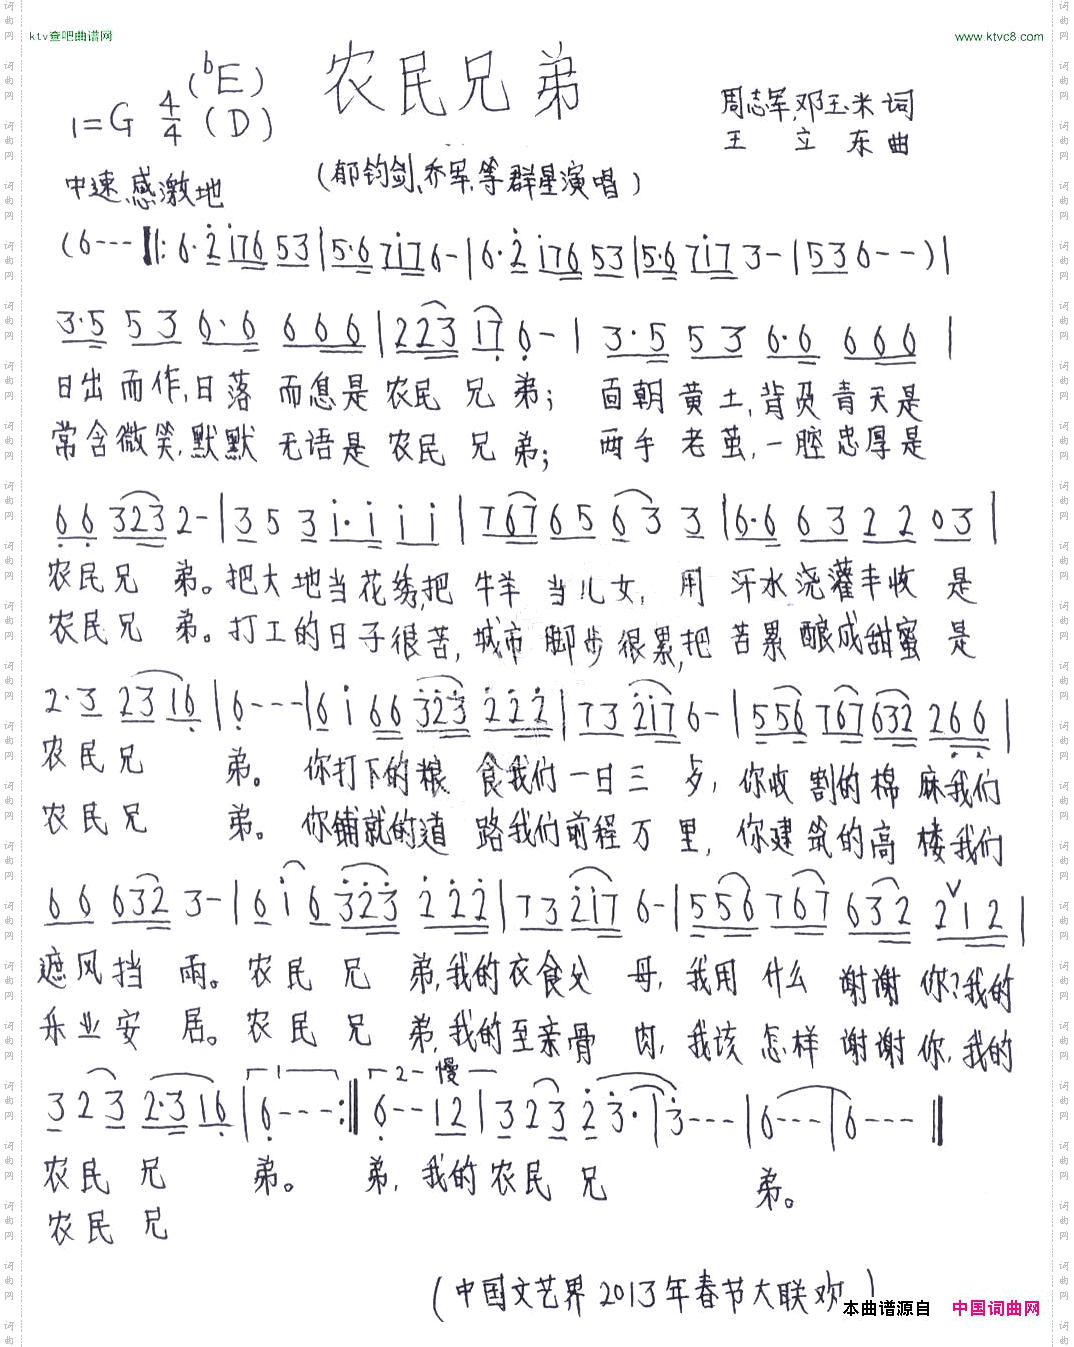 ktv查吧曲谱网 www.ktvc8.com
农民兄弟
(♭E)
1=G 4/4 (D)
周志军,邓玉米 词
王 立 东 曲
中速,感激地
(郁钧剑、乔军,等群星演唱)
(6--- ‖: 6·2 176 53 | 5·6 717 6- | 6·2 176 53 | 5·6 717 3- | 536 6--) |
3·5 53 6·6 666 | 223 17 6- | 3·5 53 6·6 666 |
日出而作,日落 而息是 农民 兄 弟; 面朝黄土,背负青天是
常含微笑,默默 无语是 农民 兄 弟; 两手 老茧,一腔忠厚是
66 323 2- | 3 5 3 1·1 1 1 | 767 65 63 3 | 6·6 63 22 03 |
农民兄 弟。把大地当花绣,把 牛羊 当儿女, 用 汗水浇灌丰收 是
农民兄 弟。打工的日子很苦,城市 脚步很累,把 苦累 酿成甜蜜 是
2·3 2316 | 6--- | 6 1 66 323 222 | 73 217 6- | 556 767 632 266 |
农民兄 弟。 你打下的粮 食我们一日三 歺, 你收 割的棉 麻我们
农民兄 弟。 你铺就的道 路我们前程万 里, 你建 筑的高 楼我们
66 632 3- | 6 1 6 323 222 | 73 217 6- | 556 767 632 212 |
遮风挡 雨。 农民 兄 弟,我的衣食父 母, 我用 什么 谢谢 你?我的
乐业安 居。 农民 兄 弟,我的至亲骨 肉, 我该 怎样 谢谢 你,我的
1 2 慢
323 2·3 16 | 6--- :‖ 6-- 12 | 323 2 3· | 3--- | 6--- | 6--- ‖
农民 兄 弟。 弟, 我的 农民 兄 弟。
农民 兄
(中国文艺界2013年春节大联欢)
本曲谱源自 中国词曲网
词曲网